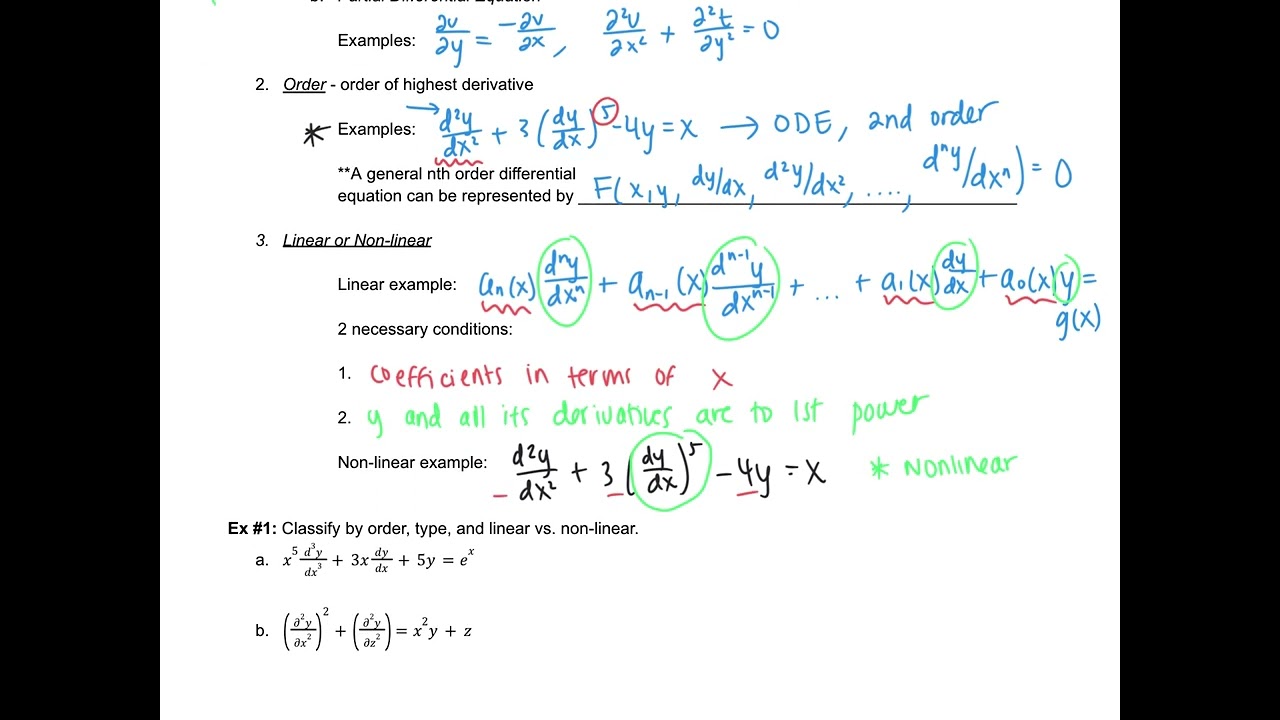 Examples: ∂v/∂y = -∂v/∂x, ∂²U/∂x² + ∂²t/∂y² = 0
2. Order - order of highest derivative
* Examples: d²y/dx² + 3(dy/dx)⁵ - 4y = x → ODE, 2nd order
**A general nth order differential
equation can be represented by F(x, y, dy/dx, d²y/dx², ...., dⁿy/dxⁿ) = 0
3. Linear or Non-linear
Linear example: aₙ(x) dⁿy/dxⁿ + aₙ₋₁(x) dⁿ⁻¹y/dxⁿ⁻¹ + ... + a₁(x) dy/dx + a₀(x)y =
g(x)
2 necessary conditions:
1. coefficients in terms of x
2. y and all its derivatives are to 1st power
Non-linear example: d²y/dx² + 3(dy/dx)⁵ - 4y = x * Nonlinear
Ex #1: Classify by order, type, and linear vs. non-linear.
a. x⁵ d³y/dx³ + 3x dy/dx + 5y = eˣ
b. (∂²y/∂x²)² + (∂²y/∂z²) = x²y + z